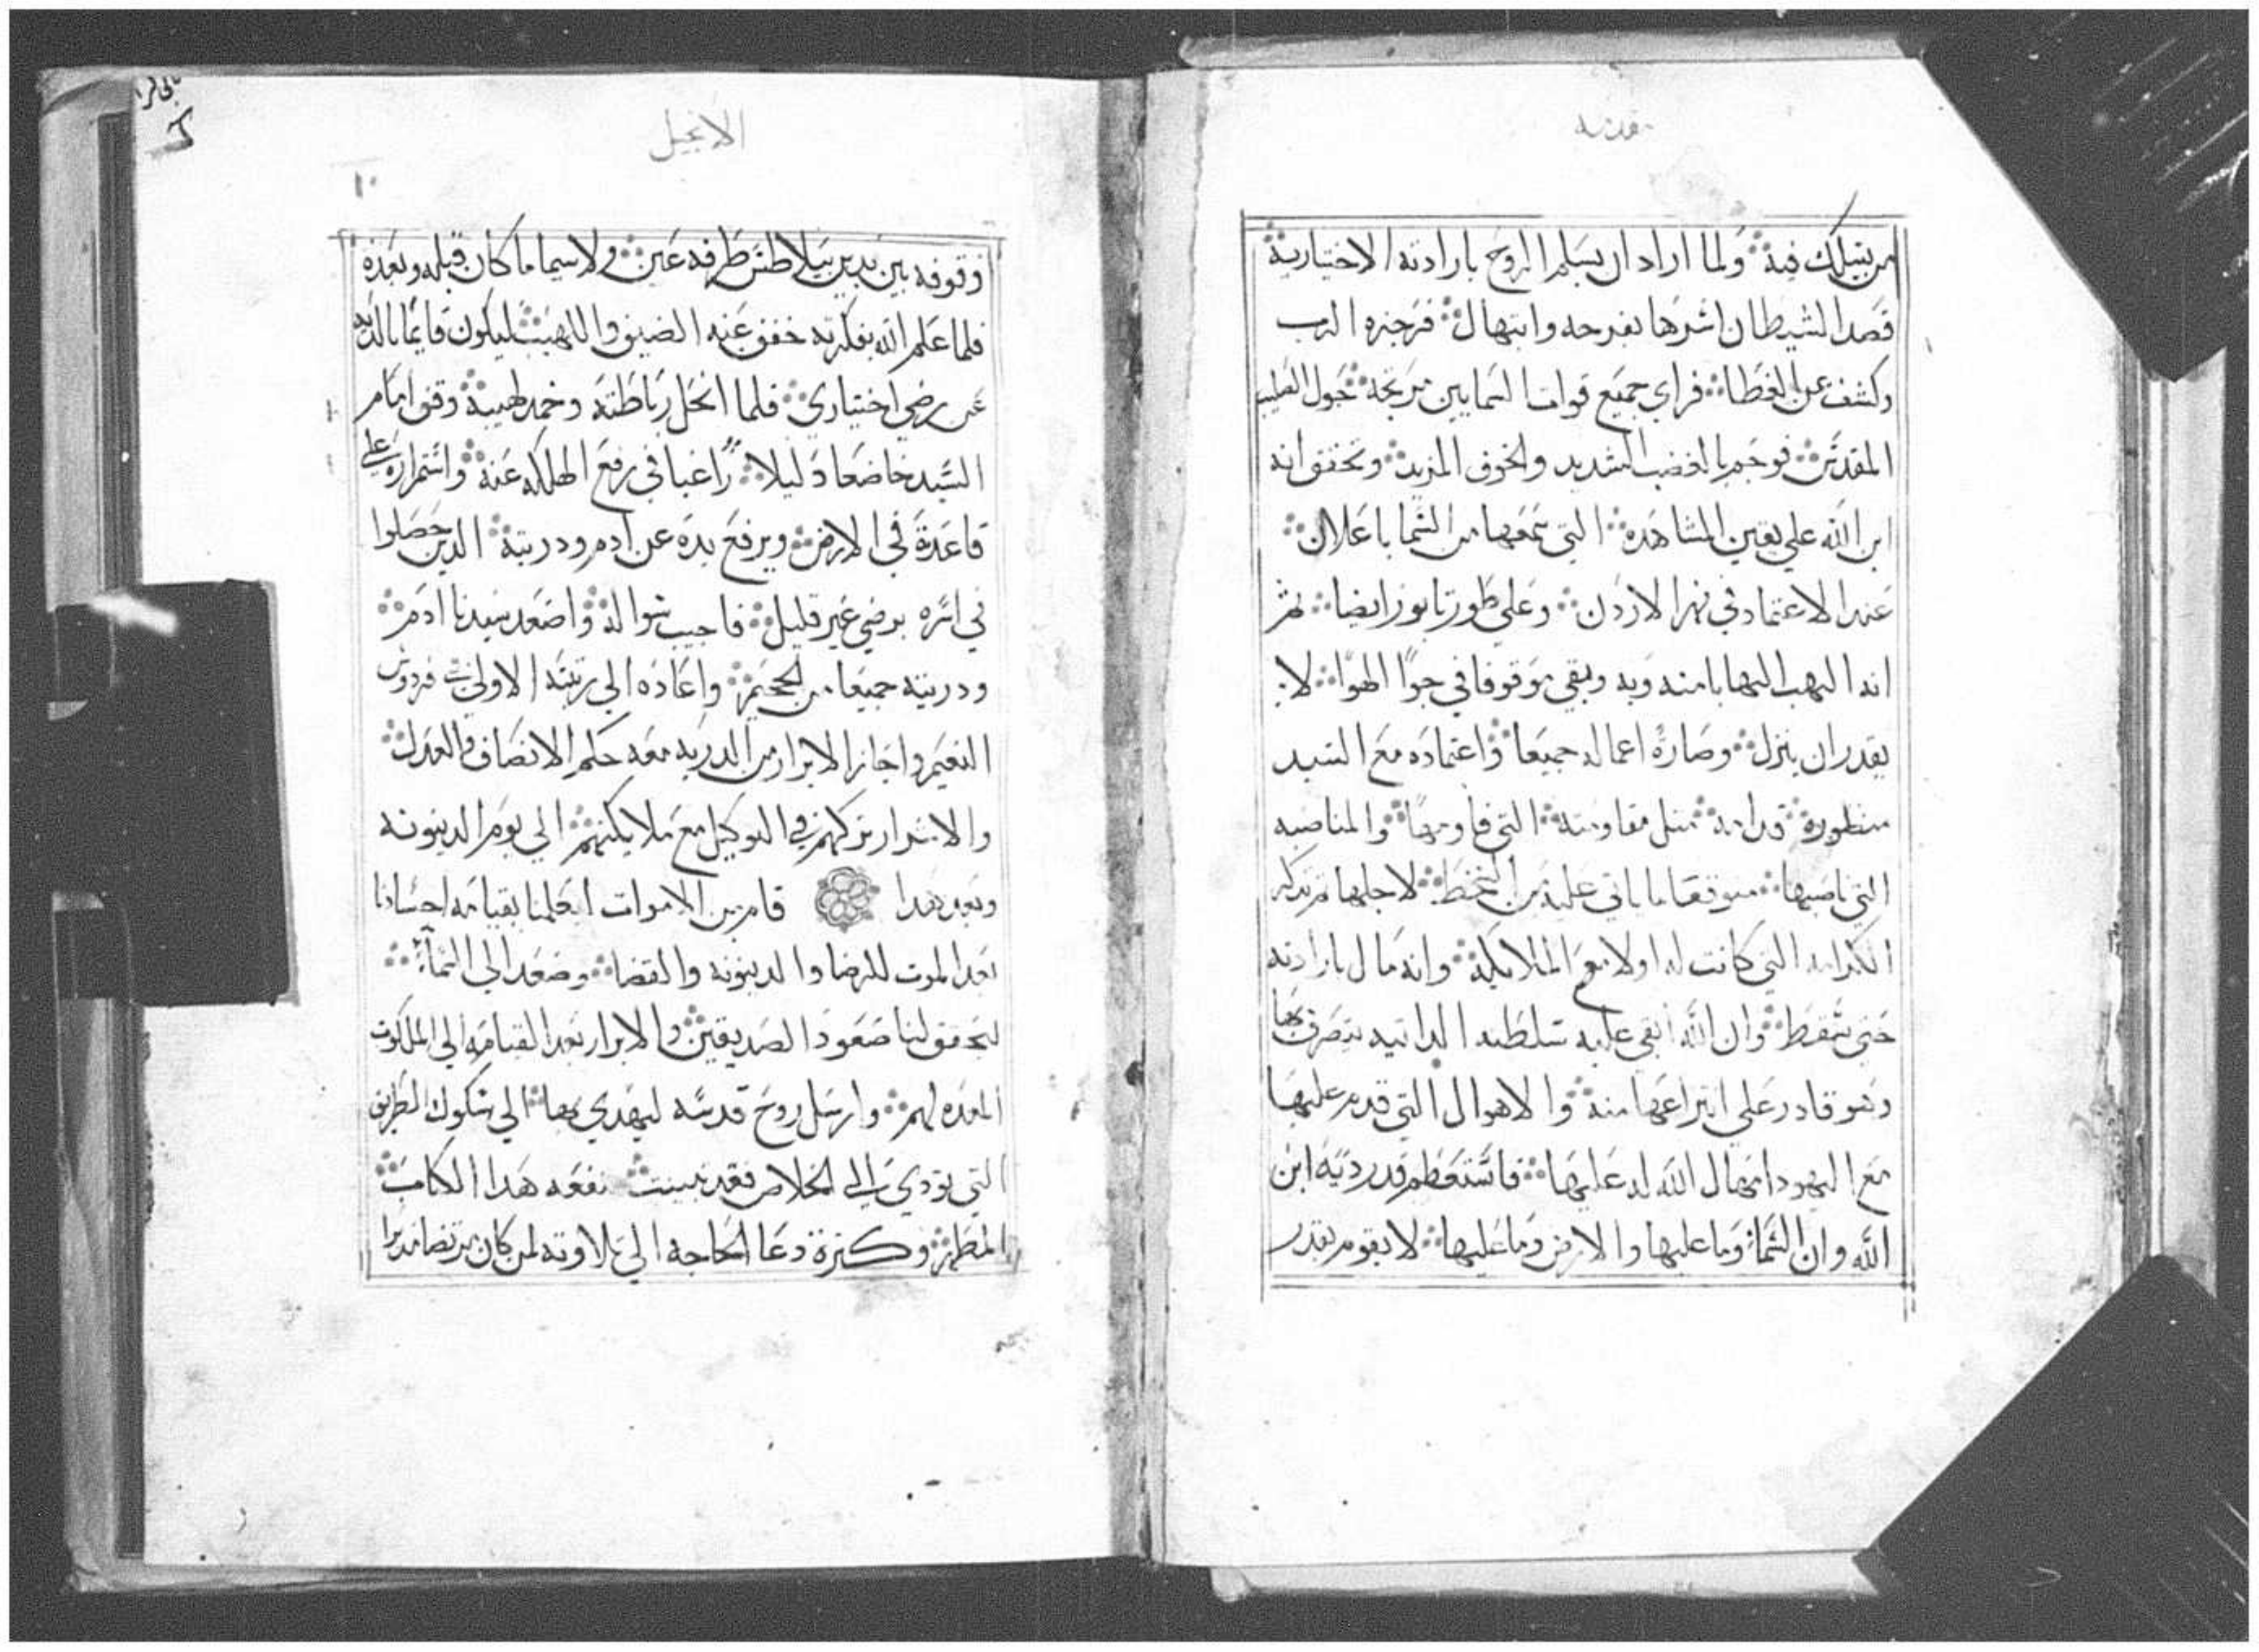 مقدمة
من يتسلك فيه ولما اراد ان يسلم الروح بارادته الاختيارية
قصد الشيطان اشرها بفرحه وابتهال فزجره الرب
وكشف عن الغطا فراي جميع قوات السمايين مرتجة حول الصليب
المقدس فوجم بالغضب الشديد والخوف المزيد وتحقق انه
ابن الله علي يقين المشاهدة التي سمعها من السما باعلان
عند الاعتماد في نهر الاردن وعلي طور تابور ايضا ثم
انه وبقي موقوفا في جو الهوا لا
يقدر ان ينزل وصارة اعماله جميعا واعتماده مع السيد
منظورة قدامه مثل مقاومته التي قاومها والمناصبه
التي ناصبها متوقعا ما ياتي عليه من السخط لاجلها
الكرامه التي كانت له اولا مع الملايكة وانه مال بارادته
حتي سقط وان الله ابقي عليه سلطته الداتيه يتصرف بها
وهو قادر علي انتزاعها منه والاهوال التي قدم عليها
مع اليهود امهال الله له عليها فاستعظم قدر دية ابن
الله وان السما وما عليها والارض وما عليها لا يقوم بقدر
الانجيل
١٠
وقوفه بين يدين بيلاطس طرفه عين ولاسيما ما كان قبله وبعده
فلما علم الله بفكرته خفف عنه الضيق واللهيب ليكون قايما
عن رضي اختياري فلما انحل رباطته وخمد لهيبة وقف امام
السيد خاضعا دليلا راغبا في رفع الهلاك عنه واستمراره علي
قاعدة في الارض ويرفع يده عن ادم ودريته الدين حصلوا
في اسره برضي غير قليل فاجيب سواله واصعد سيدنا ادم
ودريته جميعا من الجحيم واعاده الي رتبته الاولي فردوس
النعيم واجاز الابرار من الدريه معه حكم الانصاف والعدل
والاشرار تركهم في التوكيل مع ملايكتهم الي يوم الدينونه
وبعد هدا قام من الاموات ليعلمنا بقيامه اجسادنا
بعد الموت للرضا والدينونه والقضا وصعد الي السماء
ليحقق لنا صعود الصديقين والابرار بعد القيامه الي الملكوت
المعده لهم وارسل روح قدسه ليهدي بها الي سلوك الطريق
التي تودي الي الخلاص فقد تبينت نفعه هدا الكتاب
المطهر وكثرة دعا الحاجه الي تلاوته لمن كان